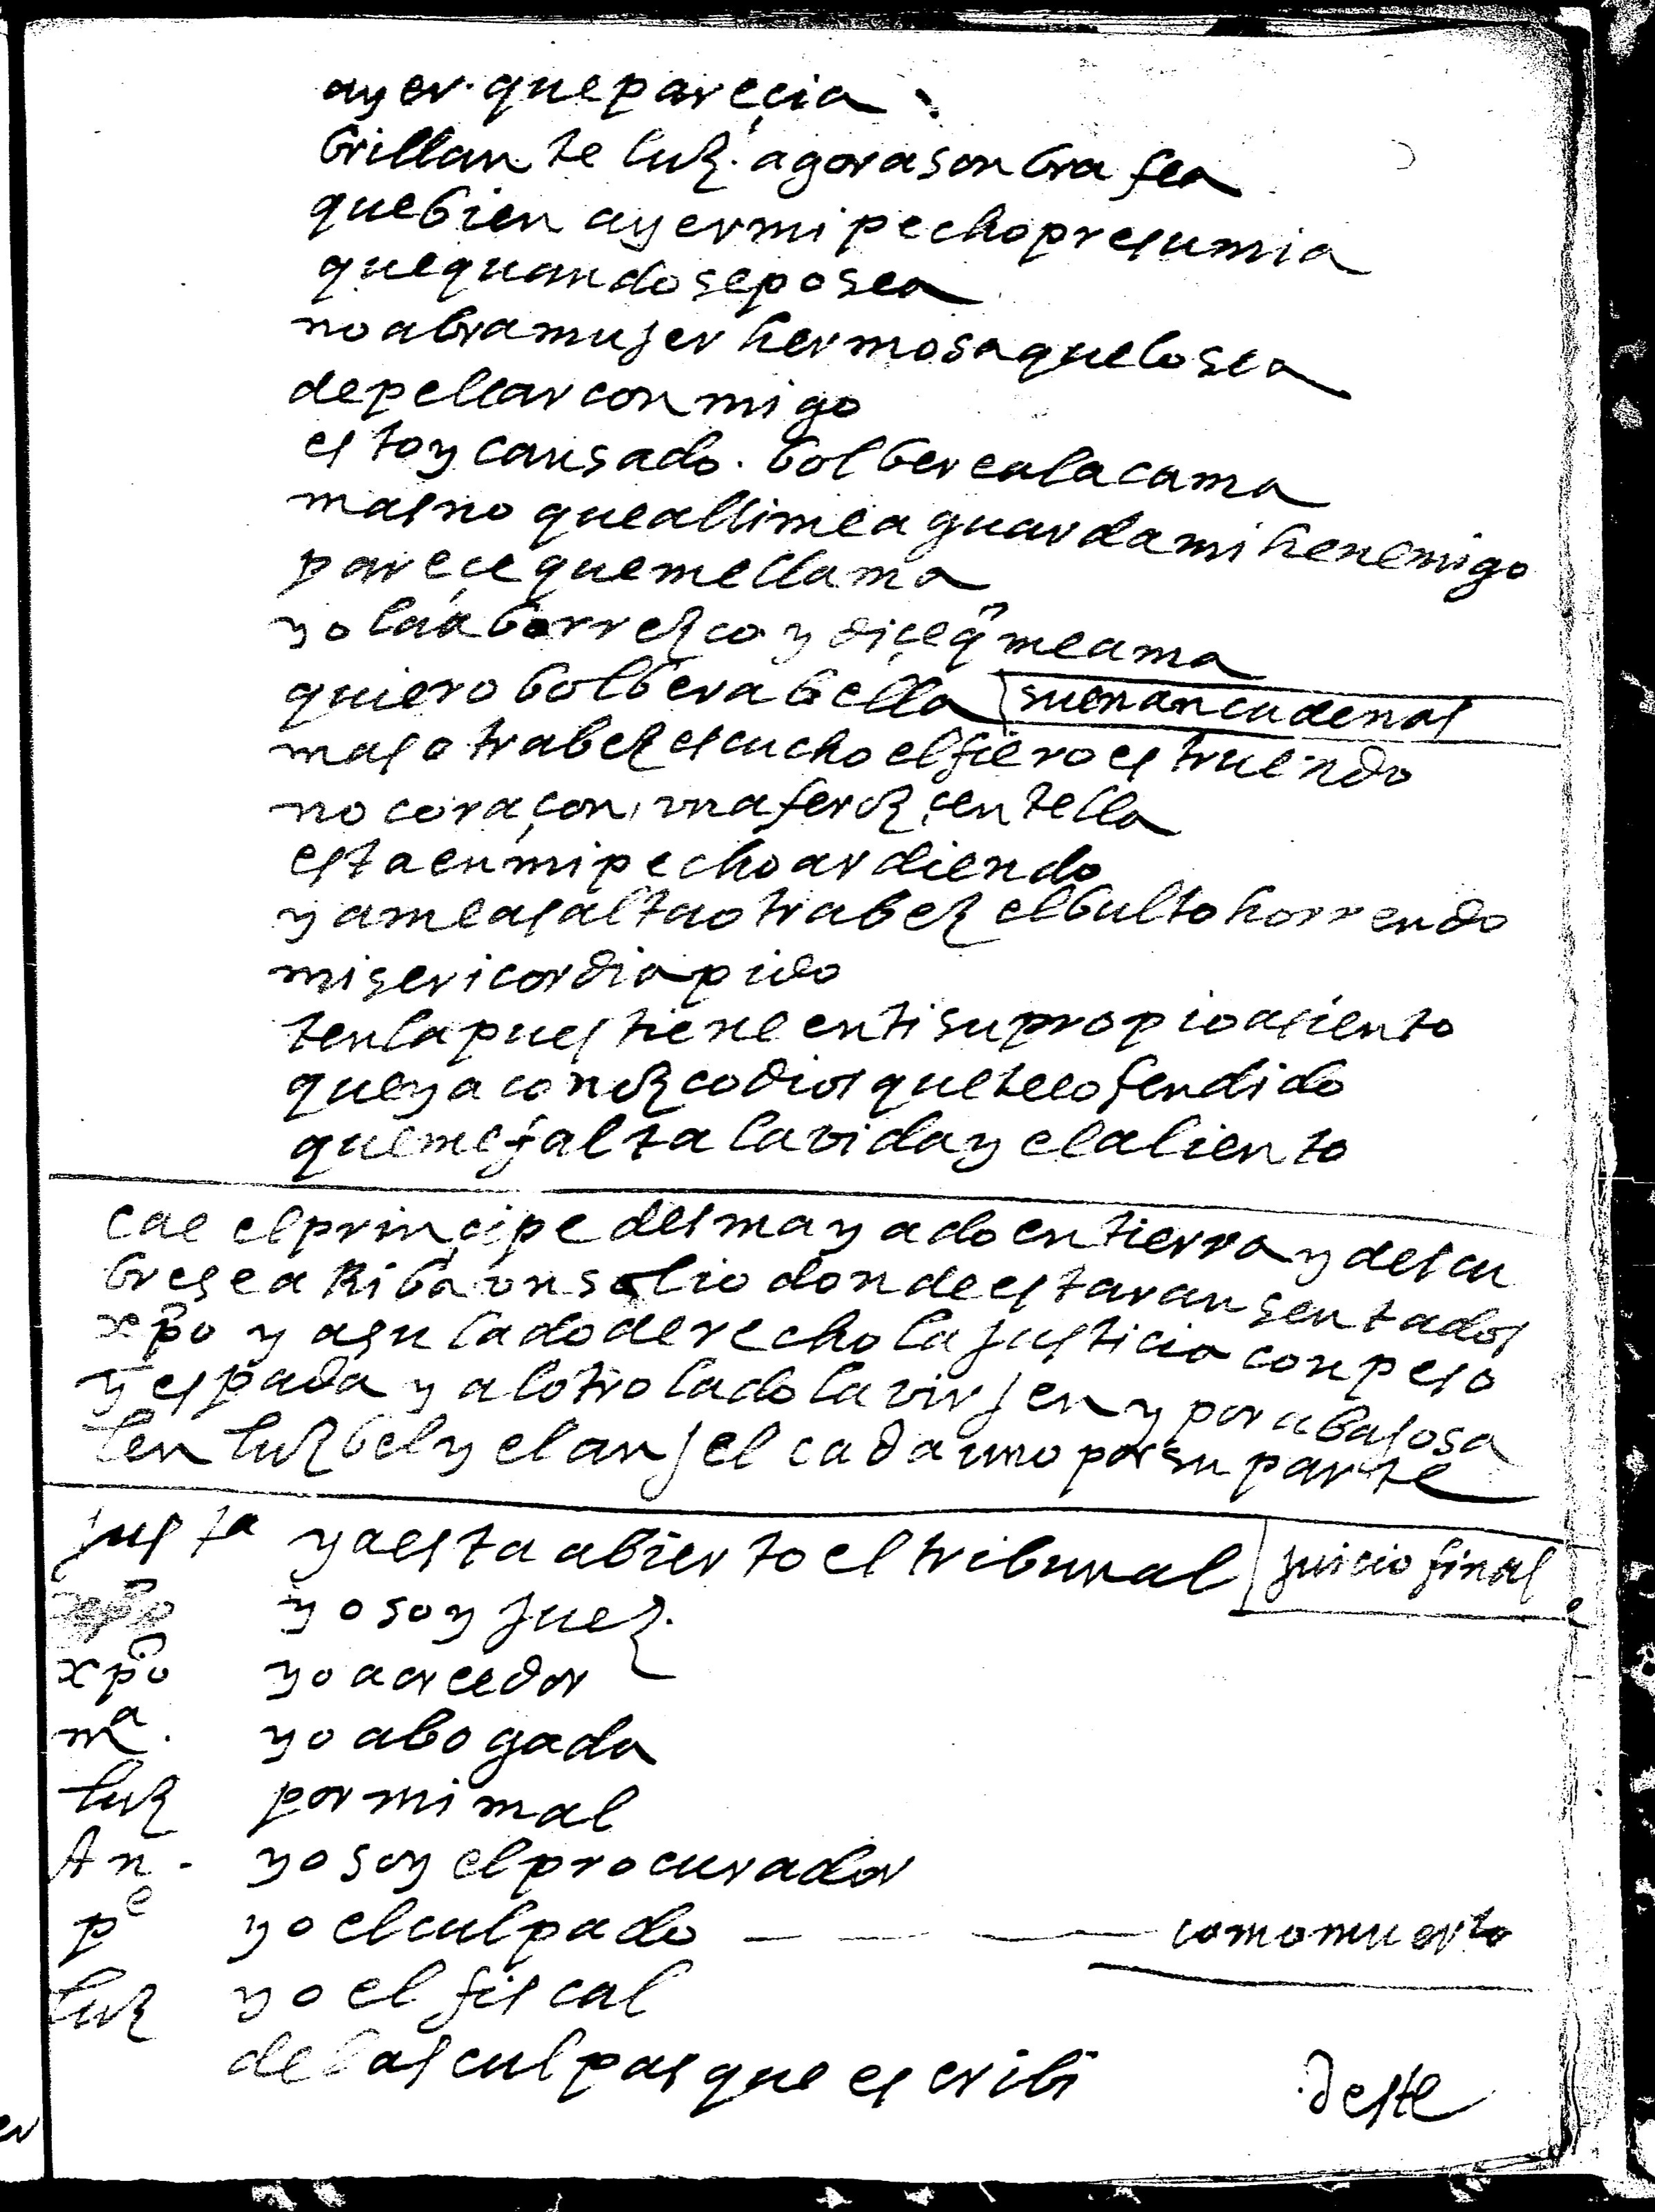 ayer. que pareçia
brillante luz. agora sonbra fea
que bien ayer mi pecho presumia
que quando se posea
no abra mujer hermosa que lo sea
de pelear conmigo
estoy cansado. bolbere a la cama
mas no que alli me aguarda mi henemigo
pareçe que me llama
yo la aborrezco y diçe q̃ me ama
quiero bolber a bella suenan cadenas
mas otra bez escucho el fiero estruendo
no coraçon, una feroz çentella
esta en mi pecho ardiendo
ya me asalta otra bez el bulto horrendo
misericordia pido
tenla pues tiene en ti su propio asiento
que ya conozco dios que te e ofendido
que me falta la vida y el aliento
cae el prinçipe desmayado en tierra y descu
brese aRiba un solio donde estaran sentados
xp̃o y a su lado derecho la justicia con peso
y espada y al otro lado la virjen y por abajo sa
len luzbel y el anjel cada uno por su parte
justa ya esta abierto el tribunal juicio final
yo soy juez.
xp̃o yo acreedor
mª. yo abogada
luz por mi mal
An. yo soy el procurador
pe yo el culpado — — — como muerto
luz yo el fiscal
de las culpas que escribi
deste